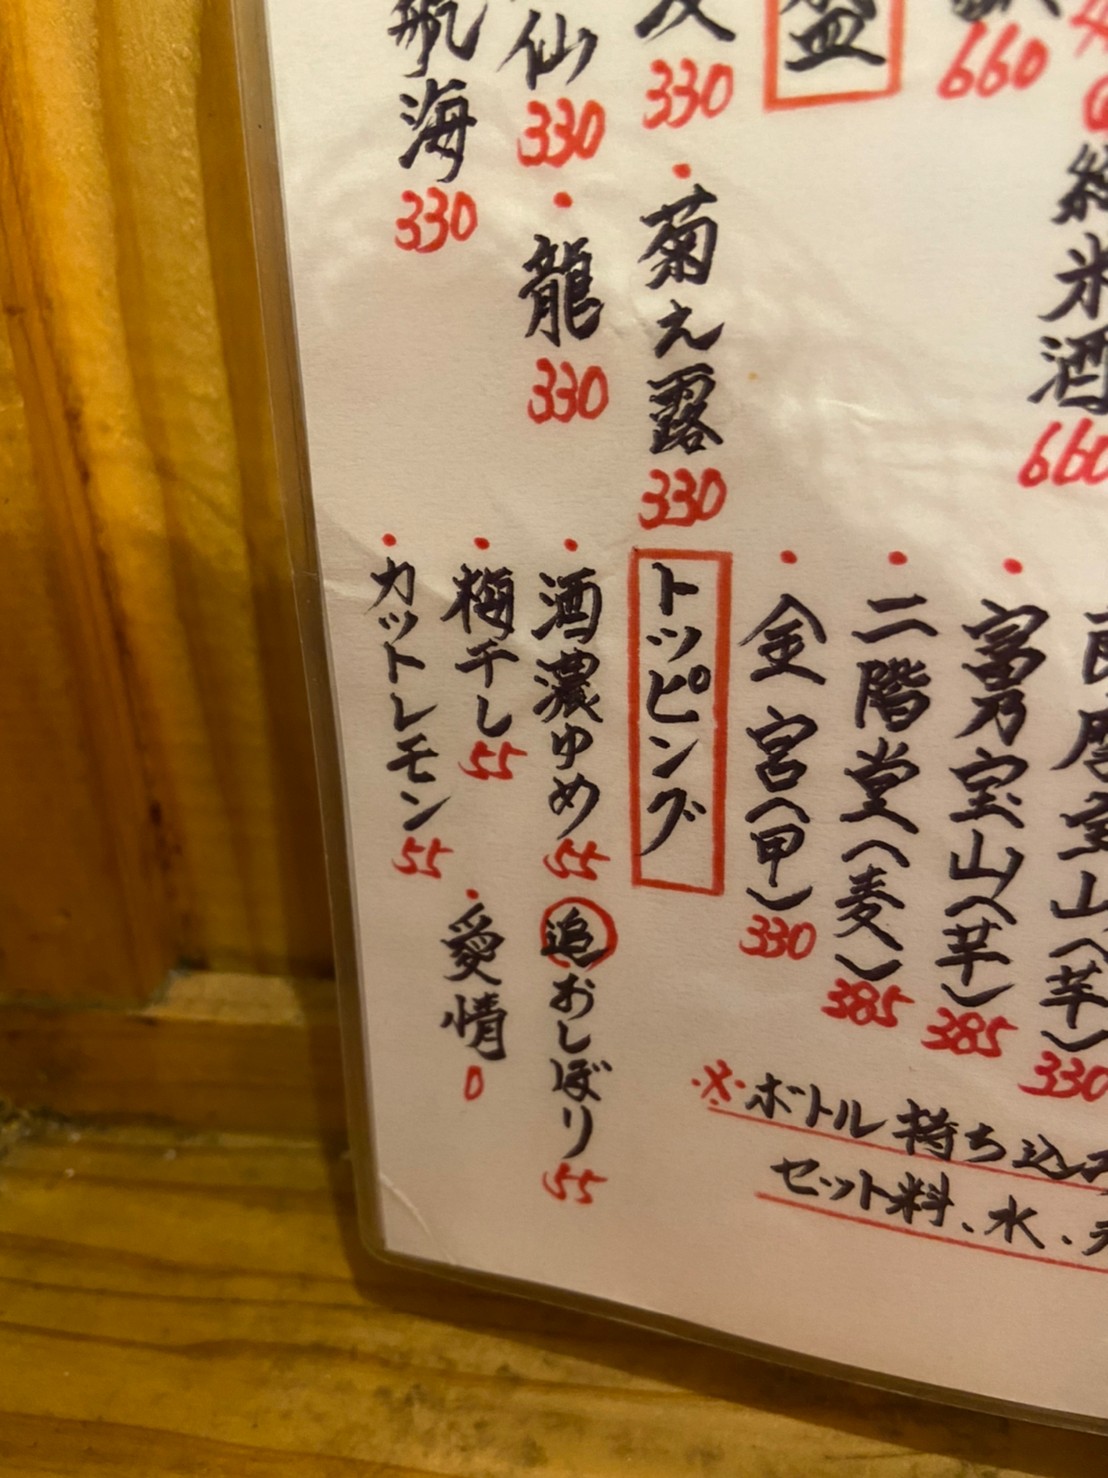 純米酒 660
660
盛
友 330
・菊之露 330
仙 330
・龍 330
航海 330
摩宝山(芋) 330
・富乃宝山(芋) 385
・二階堂(麦) 385
・金宮(甲) 330
トッピング
・酒濃ゆめ 55
追おしぼり 55
・梅干し 55
・愛情 0
・カットレモン 55
※ボトル持ち込
セット料、水、